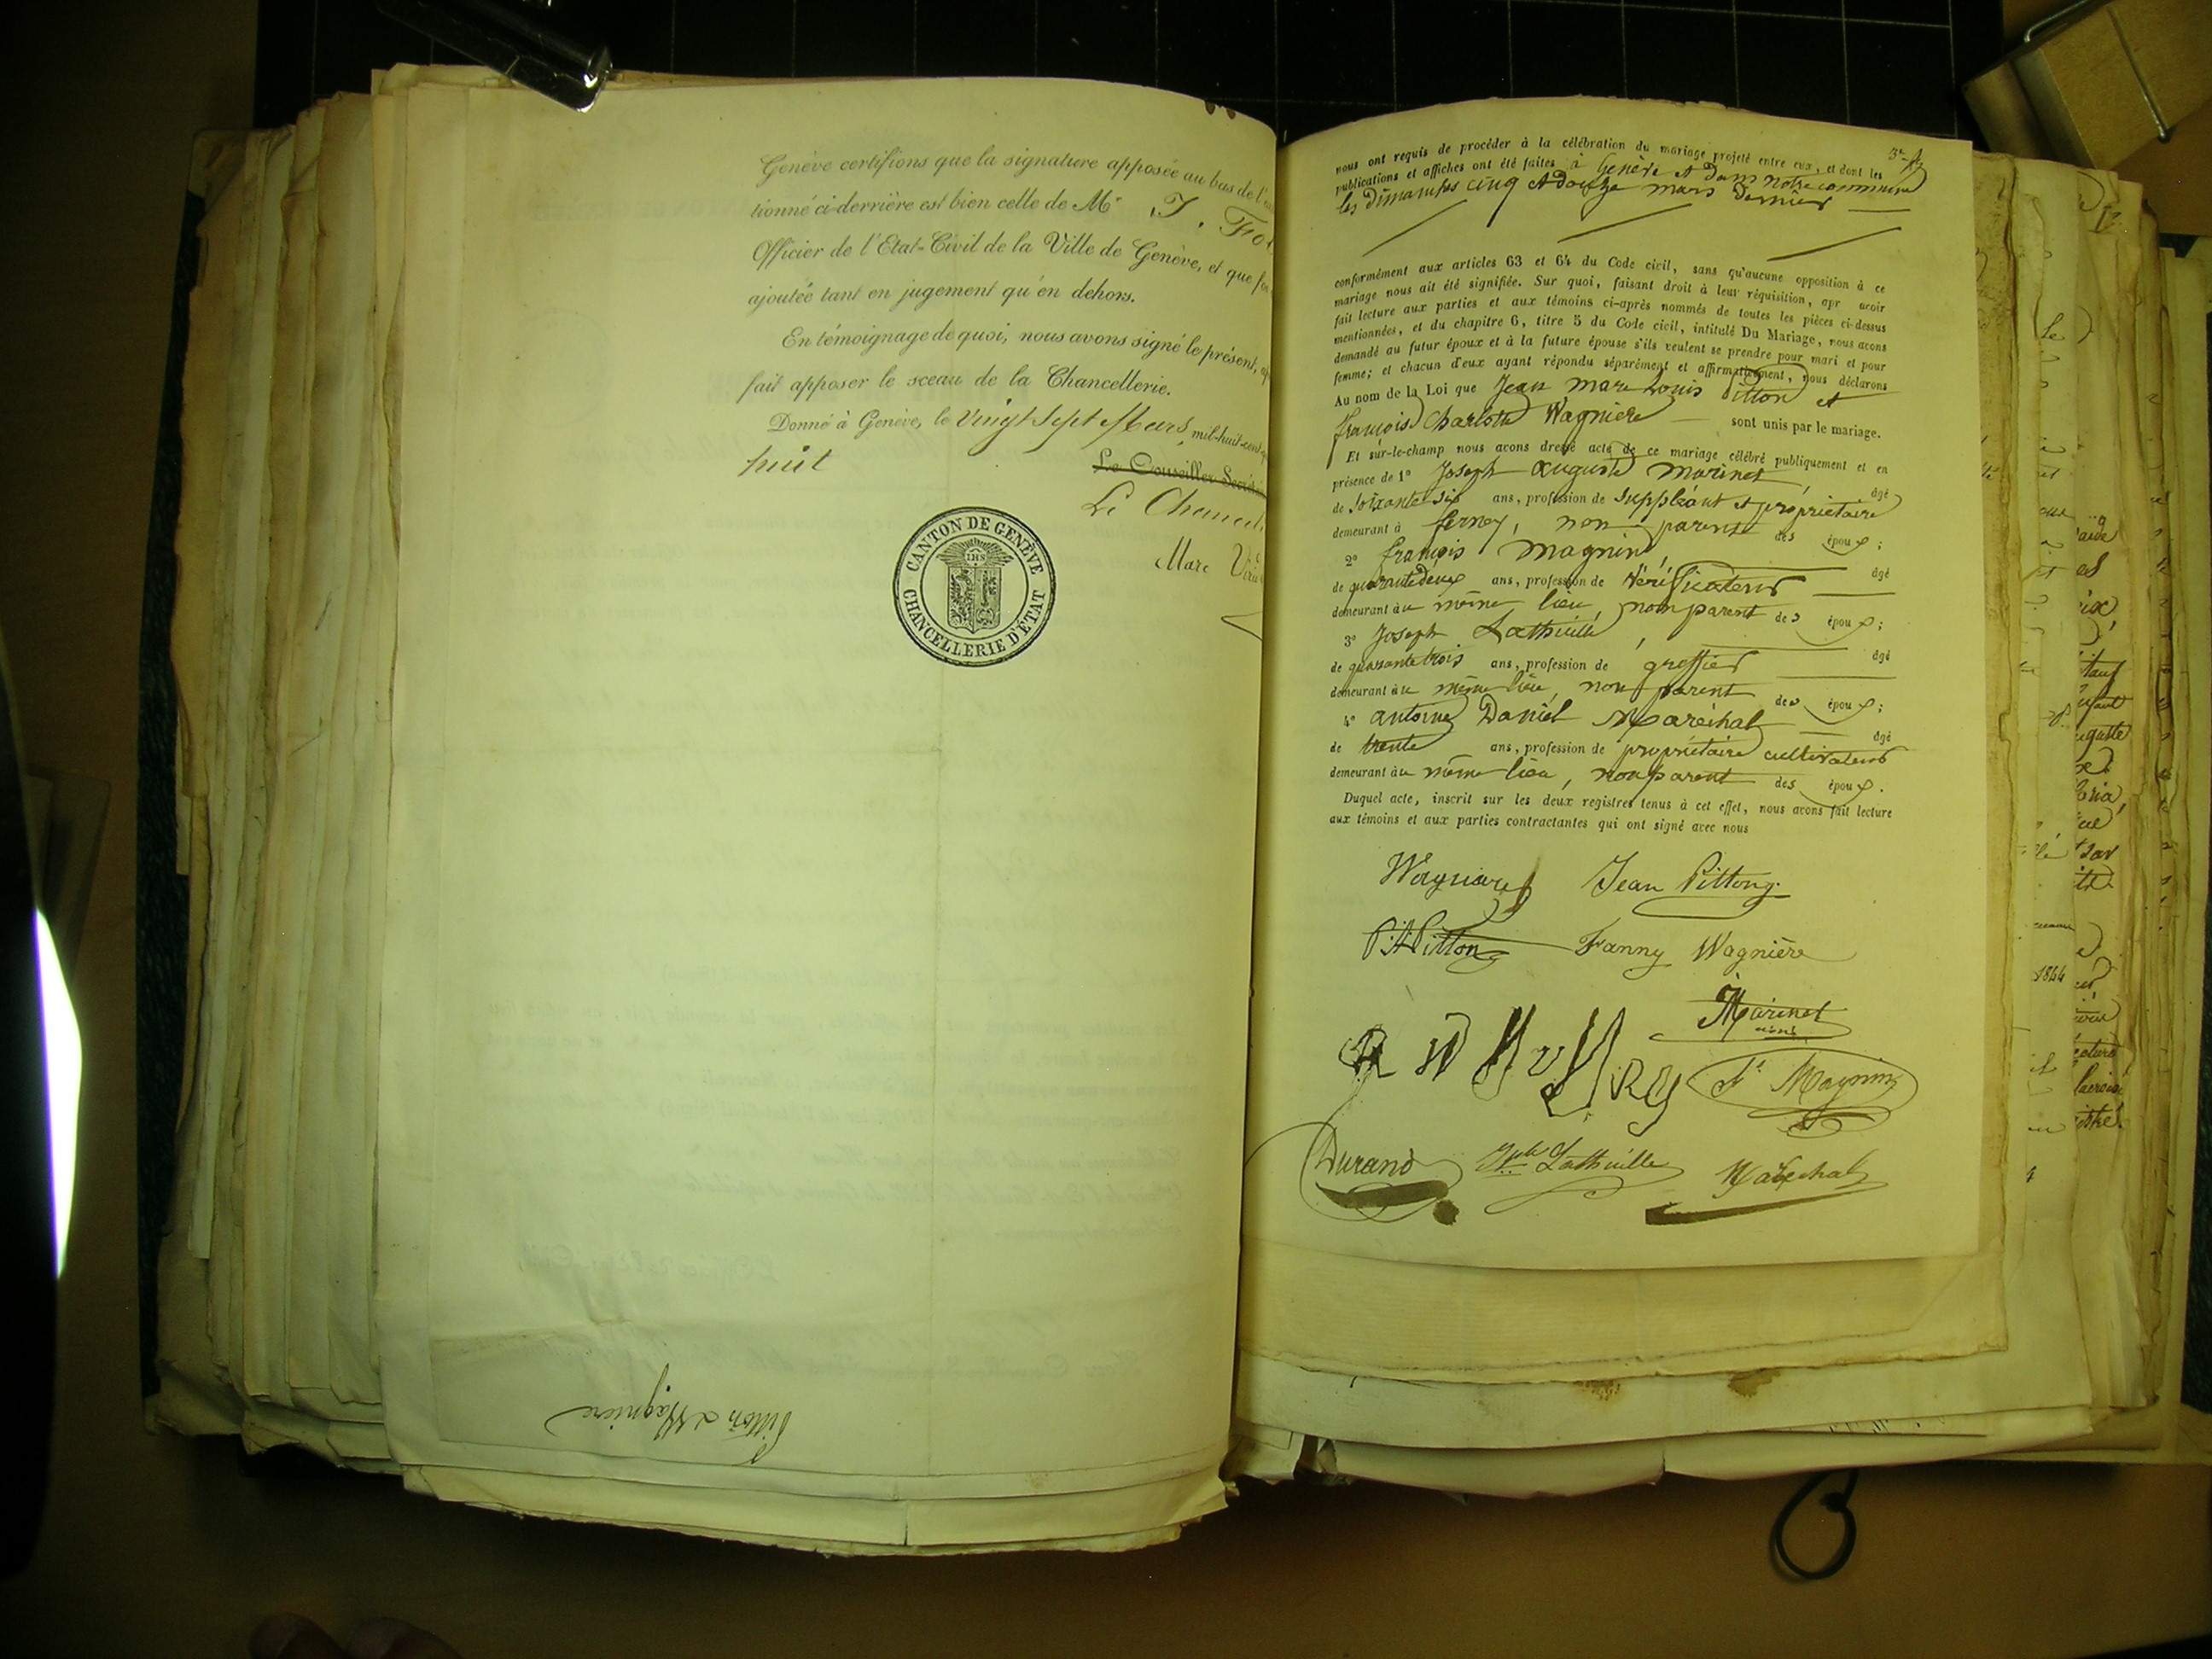 Genève certifions que la signature apposée au bas de l'
tionné ci-derrière est bien celle de Mr J. Fo
Officier de l'Etat-Civil de la Ville de Genève, et que fo
ajoutée tant en jugement qu'en dehors.
En témoignage de quoi, nous avons signé le présent,
fait apposer le sceau de la Chancellerie.
Donné à Genève, le Vingt Sept Mars mil-huit-cent
huit
Le Conseiller Secrét
Le Chancel
Marc
CANTON DE GENÈVE
IHS
CHANCELLERIE D'ÉTAT
Pitton & Wagnière
nous ont requis de procéder à la célébration du mariage projeté entre eux, et dont les
publications et affiches ont été faites à Genève et dans notre commune
les Dimanches cinq et douze mars dernier
conformément aux articles 63 et 64 du Code civil, sans qu'aucune opposition à ce
mariage nous ait été signifiée. Sur quoi, faisant droit à leur réquisition, apr avoir
fait lecture aux parties et aux témoins ci-après nommés de toutes les pièces ci-dessus
mentionnées, et du chapitre 6, titre 5 du Code civil, intitulé Du Mariage, nous avons
demandé au futur époux et à la future épouse s'ils veulent se prendre pour mari et pour
femme; et chacun d'eux ayant répondu séparément et affirmativement, nous déclarons
Au nom de la Loi que Jean Marc Louis Pitton et
françoise Charlotte Wagnière sont unis par le mariage.
Et sur-le-champ nous avons dressé acte de ce mariage célébré publiquement et en
présence de 1° Joseph auguste Marinet, âgé
de soixante six ans, profession de suppléant et propriétaire
demeurant à ferney, non parent des époux;
2° françois Magnin, âgé
de quarante deux ans, profession de Vérificateur
demeurant au même lieu, non parent des époux;
3° Joseph Lathuille, âgé
de quarante trois ans, profession de greffier
demeurant au même lieu, non parent des époux;
4° antoine Daniel Maréchal âgé
de trente ans, profession de propriétaire cultivateur
demeurant au même lieu, non parent des époux.
Duquel acte, inscrit sur les deux registres tenus à cet effet, nous avons fait lecture
aux témoins et aux parties contractantes qui ont signé avec nous
Wagnière Jean Pitton
Pitton Fanny Wagnière
Marinet
Fs Magnin
Durand Jph Lathuille Maréchal
1844